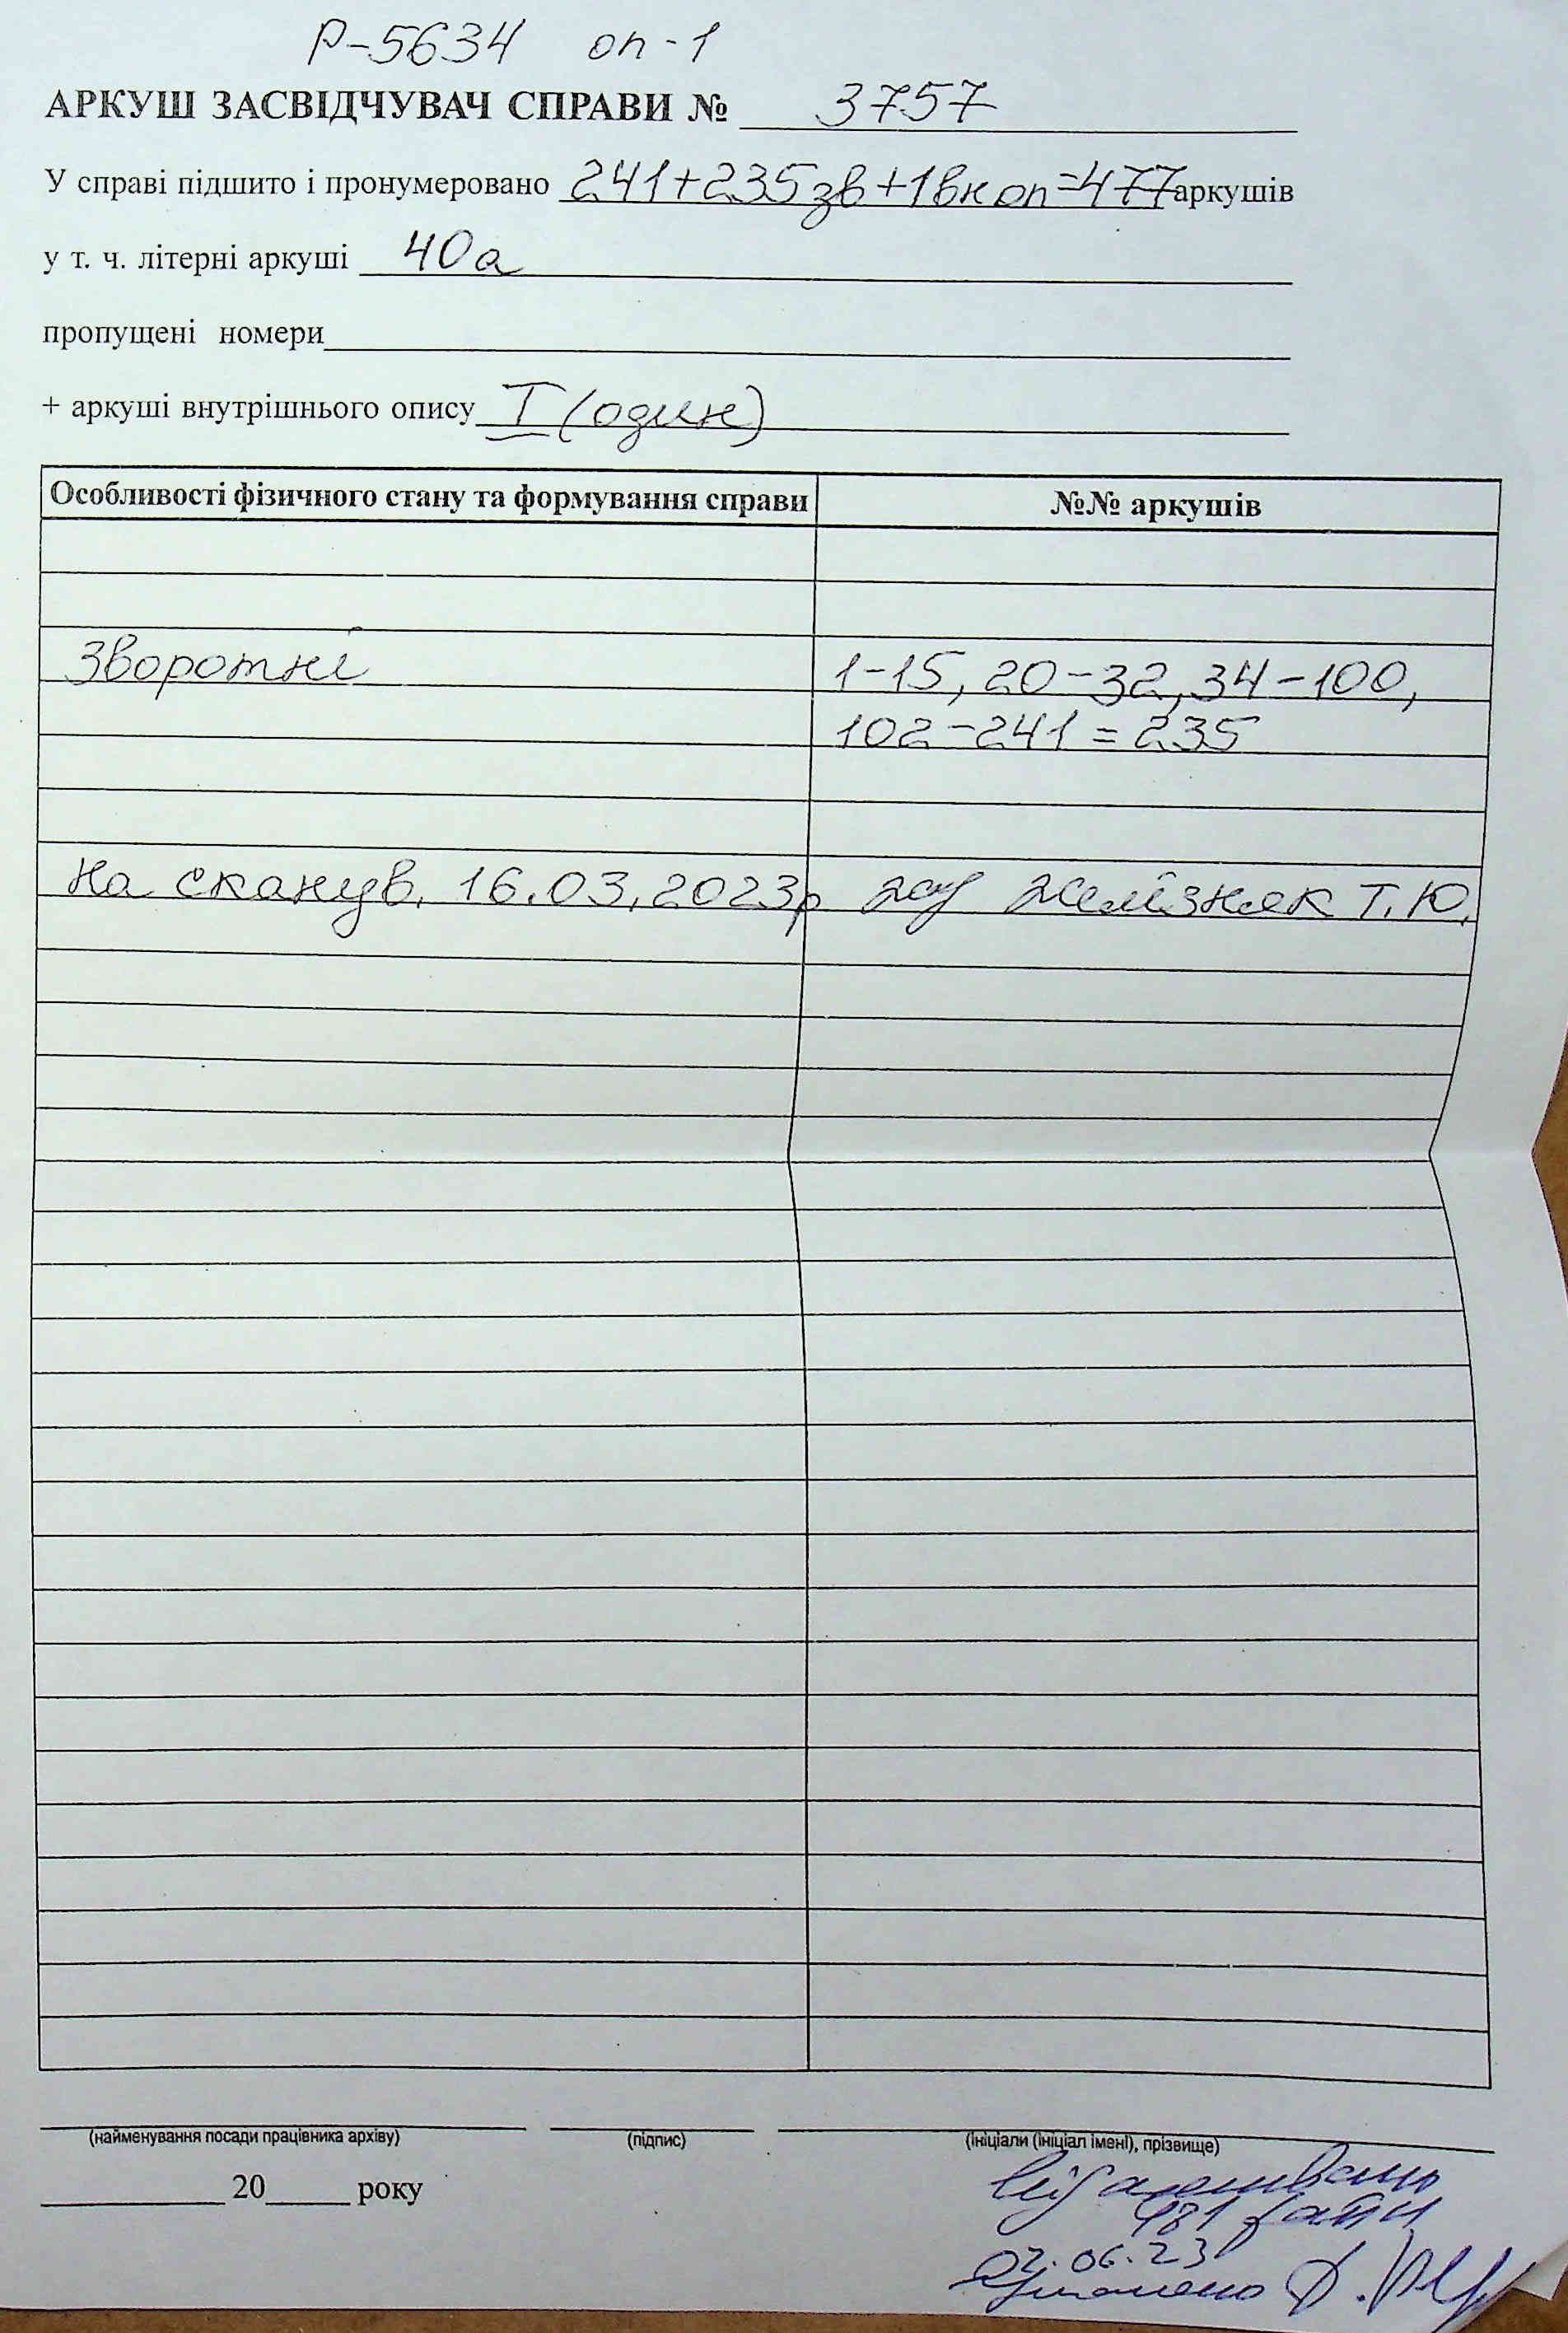 Р-5634 оп-1
АРКУШ ЗАСВІДЧУВАЧ СПРАВИ № 3757
У справі підшито і пронумеровано 241+235зв+1вн оп=477 аркушів
у т. ч. літерні аркуші 40а
пропущені номери
+ аркуші внутрішнього опису I (один)
Особливості фізичного стану та формування справи №№ аркушів
Зворотні 1-15, 20-32, 34-100,
102-241 = 235
На сканув. 16.03.2023р Желізняк Т.Ю.
(найменування посади працівника архіву) (підпис) (ініціали (ініціал імені), прізвище)
20 року
Відскановано
481 файл
02.06.23